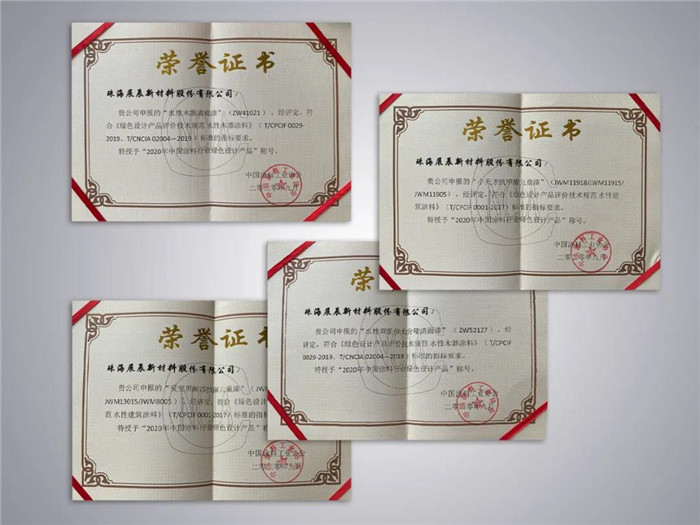 荣誉证书
珠海展辰新材料股份有限公司：
贵公司申报的“水性木器清面漆”（ZW41021），经评定，符
合《绿色设计产品评价技术规范 水性木器涂料》（T/CPCIF 0029-
2019、T/CNCIA 02004—2019）标准的指标要求。
特授予“2020年中国涂料行业绿色设计产品”称号。
中国涂料工业协会
二〇二〇年九月
荣誉证书
珠海展辰新材料股份有限公司：
贵公司申报的“小天才抗甲醛儿童漆”（JWM11918/JWM11915/
JWM11905），经评定，符合《绿色设计产品评价技术规范 水性建
筑涂料》（T/CPCIF 0001-2017）标准的指标要求。
特授予“2020年中国涂料行业绿色设计产品”称号。
中国涂料工业协会
二〇二〇年九月
荣
珠海展辰新材料股份有限公司：
贵公司申报的“水性双组份七分哑清面漆”（ZW52127），经
评定，符合《绿色设计产品评价技术规范 水性木器涂料》（T/CPCIF
0029-2019、T/CNCIA 02004—2019）标准的指标要求。
特授予“2020年中国涂料行业绿色设计产品”称号。
中国涂料工业协会
二〇二〇年九月
荣誉证书
珠海展辰新材料股份有限公司：
贵公司申报的 儿童漆”（JW
JWM13015/JWM8005），经评定，符合《绿色设计
范 水性建筑涂料》（T/CPCIF 0001-2017）标准的指
特授予“2020年中国涂料行业绿色设计产品”称
中国涂料工业协会
二〇二〇年九月